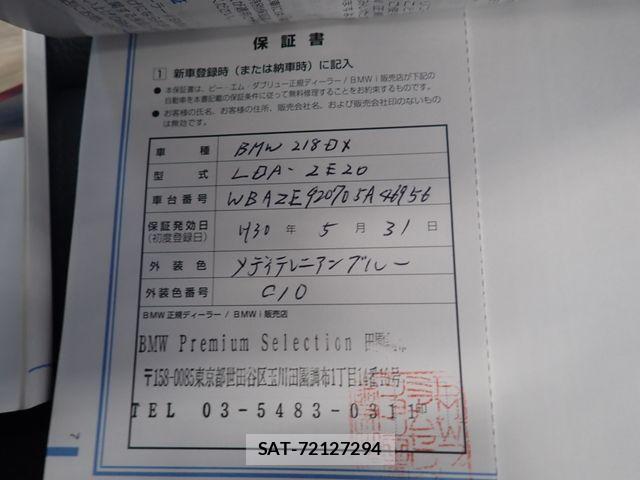 保証書
1 新車登録時（または納車時）に記入
● 本保証書は、ビー・エム・ダブリュー正規ディーラー / BMW i 販売店が下記の
自動車を本書記載の保証条件に従って無料修理することをお約束するものです。
● お客様の氏名、お客様の住所、販売会社名、および販売会社印のないもの
は無効です。
車種 BMW 218d X
型式 LDA-2E20
車台番号 WBAZE920705A46956
保証発効日 H30 年 5 月 31 日
(初度登録日)
外装色 メディテレニアンブルー
外装色番号 C10
BMW 正規ディーラー / BMW i 販売店
BMW Premium Selection 田園
〒158-0085東京都世田谷区玉川田園調布1丁目14番16号
TEL 03-5483-0311
7
SAT-72127294